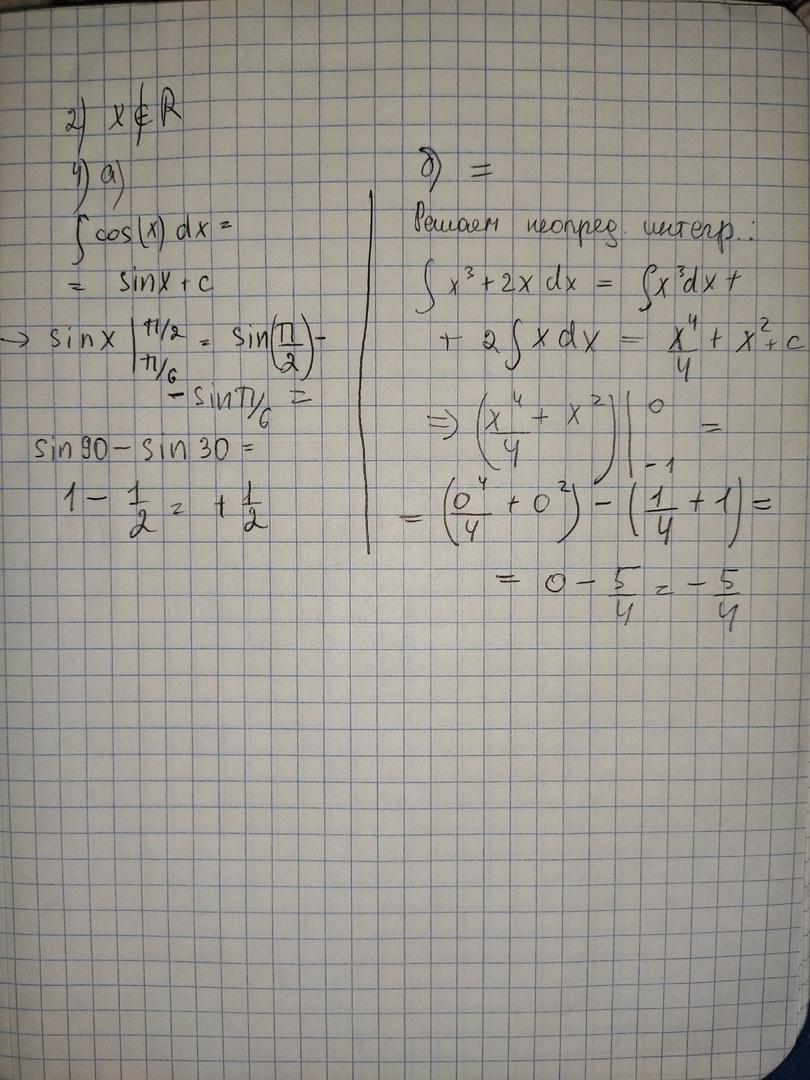 2) x∉R
4) а)
∫cos(x) dx =
= sinx + c
→ sinx |π/2 π/6 = sin(π/2) -
- sin π/6 =
sin 90 - sin 30 =
1 - 1/2 = + 1/2
б) =
Решаем неопред. интегр.:
∫ x³ + 2x dx = ∫x³dx +
+ 2∫x dx = x⁴/4 + x² + c
=> (x⁴/4 + x²) |0 -1 =
= (0⁴/4 + 0²) - (1/4 + 1) =
= 0 - 5/4 = - 5/4